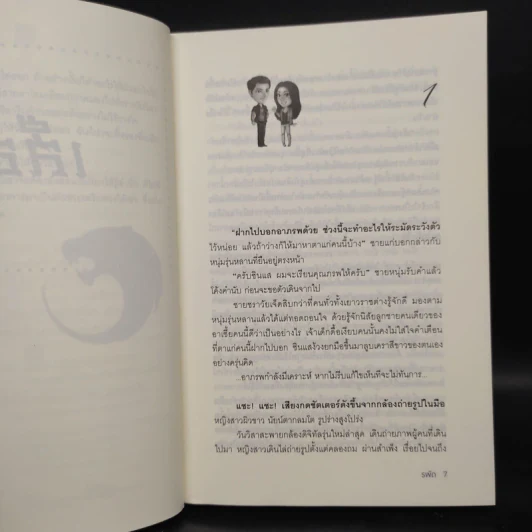 1
"ฝากไปบอกอาภรพด้วย ช่วงนี้จะทำอะไรให้ระมัดระวังตัว
ไว้หน่อย แล้วถ้าว่างก็ให้มาหาตาแก่คนนี้บ้าง" ชายแก่บอกกล่าวกับ
หนุ่มรุ่นหลานที่ยืนอยู่ตรงหน้า
"ครับซินแส ผมจะเรียนคุณภรพให้ครับ" ชายหนุ่มรับคำแล้ว
โค้งคำนับ ก่อนจะขอตัวเดินจากไป
ชายชราวัยเจ็ดสิบกว่าที่คนทั่วทั้งเยาวราชต่างรู้จักดี มองตาม
หนุ่มรุ่นหลานแล้วได้แต่ทอดถอนใจ ด้วยรู้จักนิสัยลูกชายคนเดียวของ
อาเฮี้ยคนนี้ดีว่าเป็นอย่างไร เจ้าเด็กดื้อเงียบคนนั้นคงไม่ใส่ใจคำเตือน
ที่ตาแก่คนนี้ฝากไปบอก ซินแสง้วงยกมือขึ้นมาลูบเคราสีขาวของตนเอง
อย่างครุ่นคิด
...อาภรพกำลังมีเคราะห์ หากไม่รีบแก้ไขเห็นทีจะไม่ทันการ...
แชะ! แชะ! เสียงกดชัตเตอร์ดังขึ้นจากกล้องถ่ายรูปในมือ
หญิงสาวผิวขาว นัยน์ตากลมโต รูปร่างสูงโปร่ง
วันวิสาสะพายกล้องดิจิทัลรุ่นใหม่ล่าสุด เดินถ่ายภาพผู้คนที่เดิน
ไปมา หญิงสาวเดินไล่ถ่ายรูปตั้งแต่คลองถม ผ่านสำเพ็ง เรื่อยไปจนถึง
รพัด 7